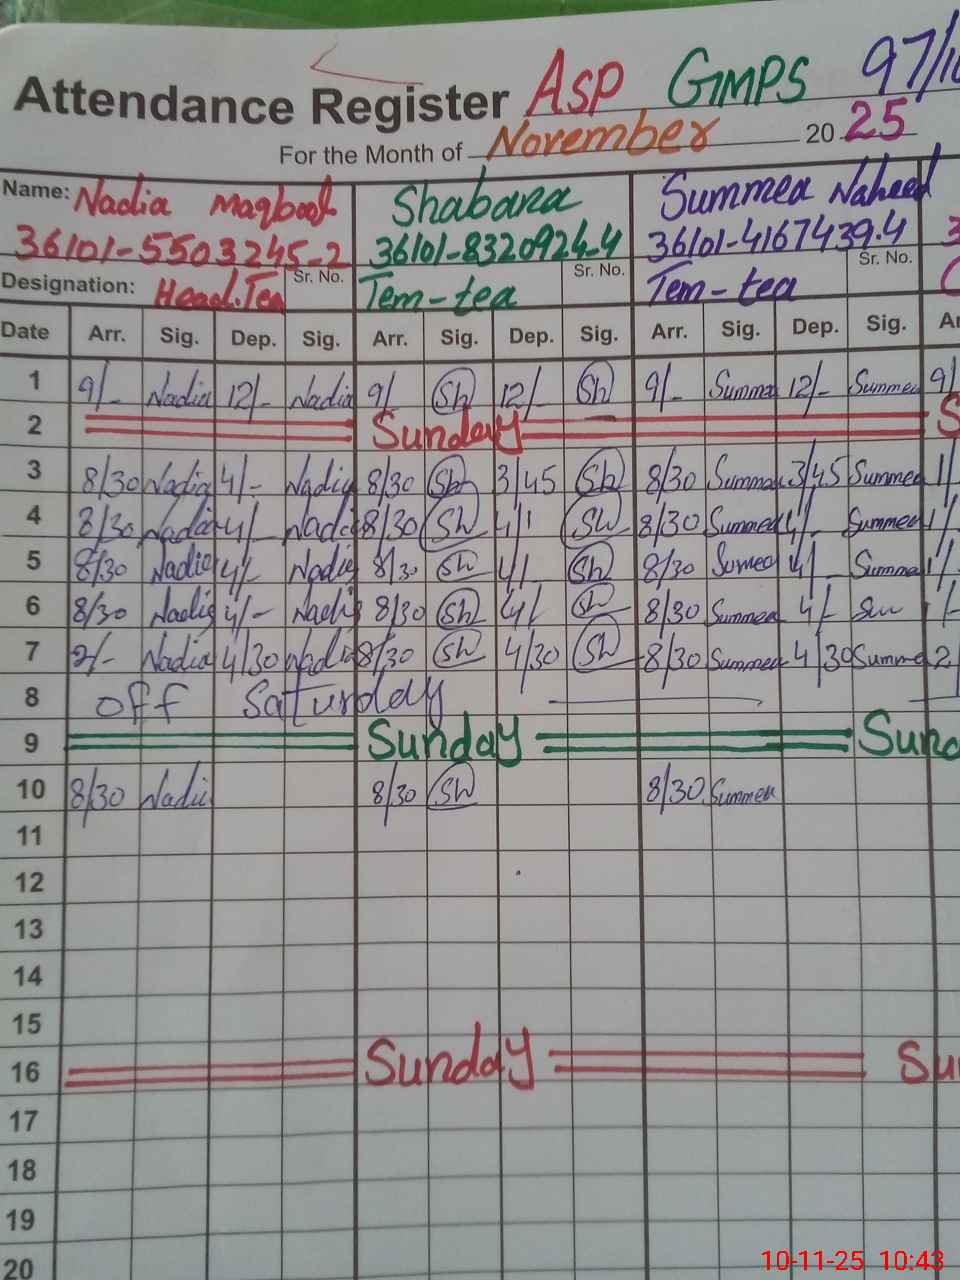 Attendance Register ASP GMPS 97/
For the Month of November 2025
Name: Nadia maqbool Shabana Summea Naheed
36101-5503245-2 36101-8320924-4 36101-4167439.4 3
Sr. No. Sr. No. Sr. No.
Designation: Head.Tea Tem-tea Tem-tea
Date Arr. Sig. Dep. Sig. Arr. Sig. Dep. Sig. Arr. Sig. Dep. Sig.
1 9/- Nadia 12/- Nadia 9/- Sh 12/- Sh 9/- Summea 12/- Summea 9/
2 Sunday S
3 8/30 Nadia 4/- Nadia 8/30 Sh 3/45 Sh 8/30 Summea 3/45 Summea 1/
4 8/30 Nadia 4/- Nadia 8/30 Sh 4/ Sh 8/30 Summea 4/- Summea 1/
5 8/30 Nadia 4/- Nadia 8/30 Sh 4/- Sh 8/30 Sumea 4/- Summea 1/-
6 8/30 Nadia 4/- Nadia 8/30 Sh 4/- Sh 8/30 Summea 4/- Su 1/-
7 Nadia 4/30 Nadia 8/30 Sh 4/30 Sh 8/30 Summea 4/30 Summe 2
8 off Saturday
9 Sunday Sund
10 8/30 Nadia 8/30 Sh 8/30 Summea
11
12
13
14
15
16 Sunday Su
17
18
19
20
10-11-25 10:43